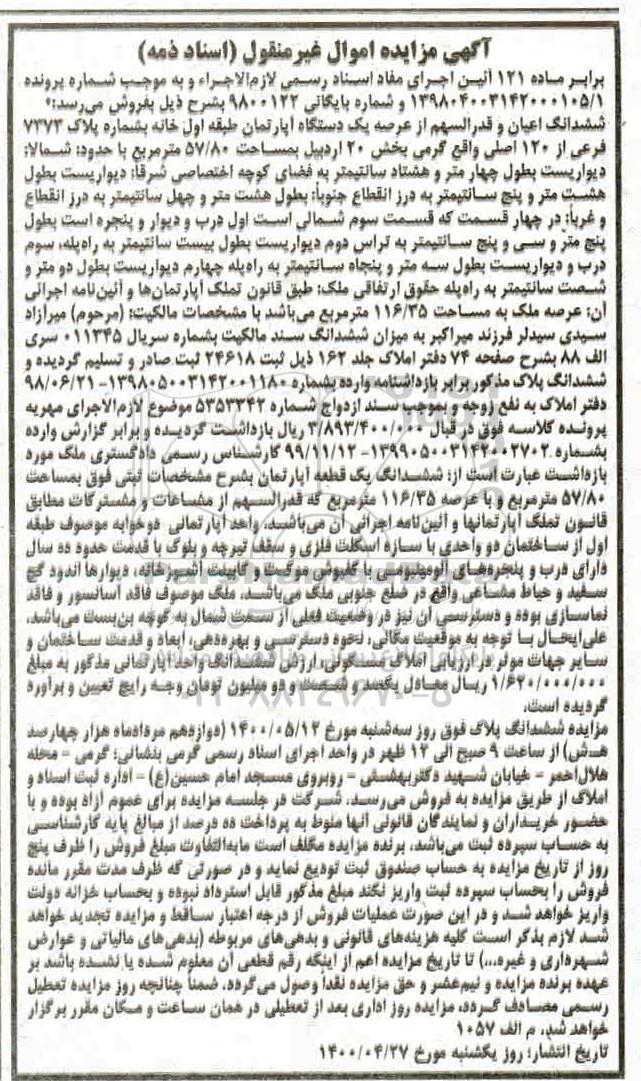 آگهی مزایده اموال غیرمنقول (اسناد ذمه)
برابر ماده ۱۲۱ آئین اجرای مفاد اسناد رسمی لازم‌الاجراء و به موجب شماره پرونده
۱۳۹۸۰۴۰۰۳۱۴۲۰۰۰۱۰۵/۱ و شماره بایگانی ۹۸۰۰۱۲۲ بشرح ذیل بفروش می‌رسد:
ششدانگ اعیان و قدرالسهم از عرصه یک دستگاه آپارتمان طبقه اول خانه بشماره پلاک ۷۳۷۳
فرعی از ۱۲۰ اصلی واقع گرمی بخش ۲۰ اردبیل بمساحت ۵۷/۸۰ مترمربع با حدود: شمالا:
دیواریست بطول چهار متر و هشتاد سانتیمتر به فضای کوچه اختصاصی شرقا: دیواریست بطول
هشت متر و پنج سانتیمتر به درز انقطاع جنوباً: بطول هشت متر و چهل سانتیمتر به درز انقطاع
و غرباً: در چهار قسمت که قسمت سوم شمالی است اول درب و دیوار و پنجره است بطول
پنج متر و سی و پنج سانتیمتر به تراس دوم دیواریست بطول بیست سانتیمتر به راه‌پله، سوم
درب و دیواریست بطول سه متر و پنجاه سانتیمتر به راه‌پله چهارم دیواریست بطول دو متر و
شصت سانتیمتر به راه‌پله حقوق ارتفاقی ملک: طبق قانون تملک آپارتمان‌ها و آئین‌نامه اجرائی
آن: عرصه ملک به مساحت ۱۱۶/۳۵ مترمربع می‌باشد با مشخصات مالکیت: (مرحوم) میرآزاد
سیدی سیدلر فرزند میراکبر به میزان ششدانگ سند مالکیت بشماره سریال ۰۱۱۳۴۵ سری
الف ۸۸ بشرح صفحه ۷۴ دفتر املاک جلد ۱۶۲ ذیل ثبت ۲۴۶۱۸ ثبت صادر و تسلیم گردیده و
ششدانگ پلاک مذکور برابر بازداشتنامه وارده بشماره ۱۳۹۸۰۵۰۰۳۱۴۲۰۰۱۱۸۰- ۹۸/۰۶/۲۱
دفتر املاک به نفع زوجه و بموجب سند ازدواج شماره ۵۳۵۳۳۴۲ موضوع لازم‌الاجرای مهریه
پرونده کلاسه فوق در قبال ۳/۸۹۳/۴۰۰/۰۰۰ ریال بازداشت گردیده و برابر گزارش وارده
بشماره ۱۳۹۹۰۵۰۰۳۱۴۲۰۰۲۷۰۲- ۹۹/۱۱/۱۲ کارشناس رسمی دادگستری ملک مورد
بازداشت عبارت است از: ششدانگ یک قطعه آپارتمان بشرح مشخصات ثبتی فوق بمساحت
۵۷/۸۰ مترمربع و با عرصه ۱۱۶/۳۵ مترمربع که قدرالسهم از مشاعات و مشترکات مطابق
قانون تملک آپارتمانها و آئین‌نامه اجرائی آن می‌باشد، واحد آپارتمانی دوخوابه موصوف طبقه
اول از ساختمان دو واحدی با سازه اسکلت فلزی و سقف تیرچه و بلوک با قدمت حدود ده سال
دارای درب و پنجره‌های آلومینیومی با کفپوش موکت و کابینت آشپزخانه، دیوارها اندود گچ
سفید و حیاط مشاعی واقع در ضلع جنوبی ملک می‌باشد، ملک موصوف فاقد آسانسور و فاقد
نماسازی بوده و دسترسی آن نیز در وضعیت فعلی از سمت شمال به کوچه بن‌بست می‌باشد،
علی‌ایحال با توجه به موقعیت مکانی، نحوه دسترسی و بهره‌دهی، ابعاد و قدمت ساختمان و
سایر جهات موثر در ارزیابی املاک مسکونی، ارزش ششدانگ واحد آپارتمانی مذکور به مبلغ
۱/۶۲۰/۰۰۰/۰۰۰ ریال معادل یکصد و شصت و دو میلیون تومان وجه رایج تعیین و برآورد
گردیده است.
مزایده ششدانگ پلاک فوق روز سه‌شنبه مورخ ۱۴۰۰/۰۵/۱۲ (دوازدهم مردادماه هزار چهارصد
ه‍.ش) از ساعت ۹ صبح الی ۱۲ ظهر در واحد اجرای اسناد رسمی گرمی بنشانی: گرمی – محله
هلال‌احمر – خیابان شهید دکتربهشتی – روبروی مسجد امام حسین(ع) – اداره ثبت اسناد و
املاک از طریق مزایده به فروش می‌رسد. شرکت در جلسه مزایده برای عموم آزاد بوده و با
حضور خریداران و نمایندگان قانونی آنها منوط به پرداخت ده درصد از مبالغ پایه کارشناسی
به حساب سپرده ثبت می‌باشد، برنده مزایده مکلف است مابه‌التفاوت مبلغ فروش را ظرف پنج
روز از تاریخ مزایده به حساب صندوق ثبت تودیع نماید و در صورتی که ظرف مدت مقرر مانده
فروش را بحساب سپرده ثبت واریز نکند مبلغ مذکور قابل استرداد نبوده و بحساب خزانه دولت
واریز خواهد شد و در این صورت عملیات فروش از درجه اعتبار ساقط و مزایده تجدید خواهد
شد لازم بذکر است کلیه هزینه‌های قانونی و بدهی‌های مربوطه (بدهی‌های مالیاتی و عوارض
شهرداری و غیره...) تا تاریخ مزایده اعم از اینکه رقم قطعی آن معلوم شده یا نشده باشد بر
عهده برنده مزایده و نیم‌عشر و حق مزایده نقداً وصول می‌گردد، ضمناً چنانچه روز مزایده تعطیل
رسمی مصادف گردد، مزایده روز اداری بعد از تعطیلی در همان ساعت و مکان مقرر برگزار
خواهد شد. م الف ۱۰۵۷
تاریخ انتشار: روز یکشنبه مورخ ۱۴۰۰/۰۴/۲۷